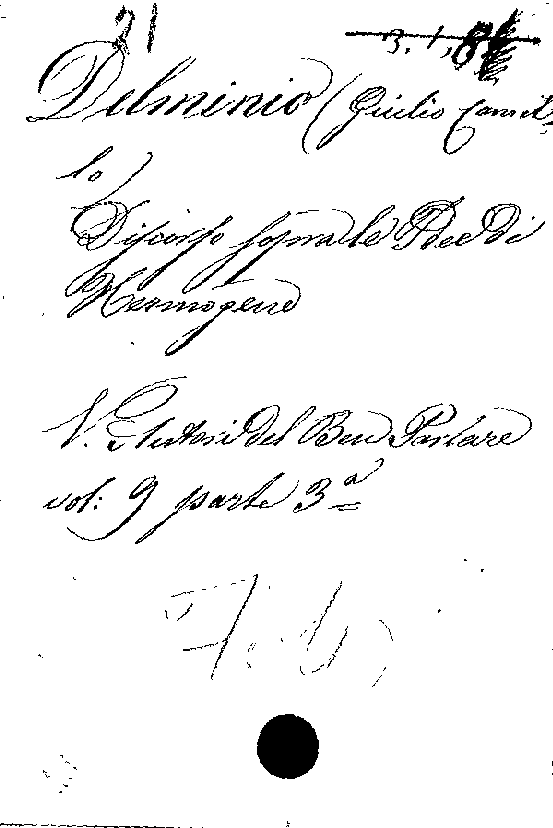 21
Delminio (Giulio Camil-
lo)
Discorso sopra le Idee di
Hermogene
V. Autori del Ben Parlare
vol: 9 parte 3ª